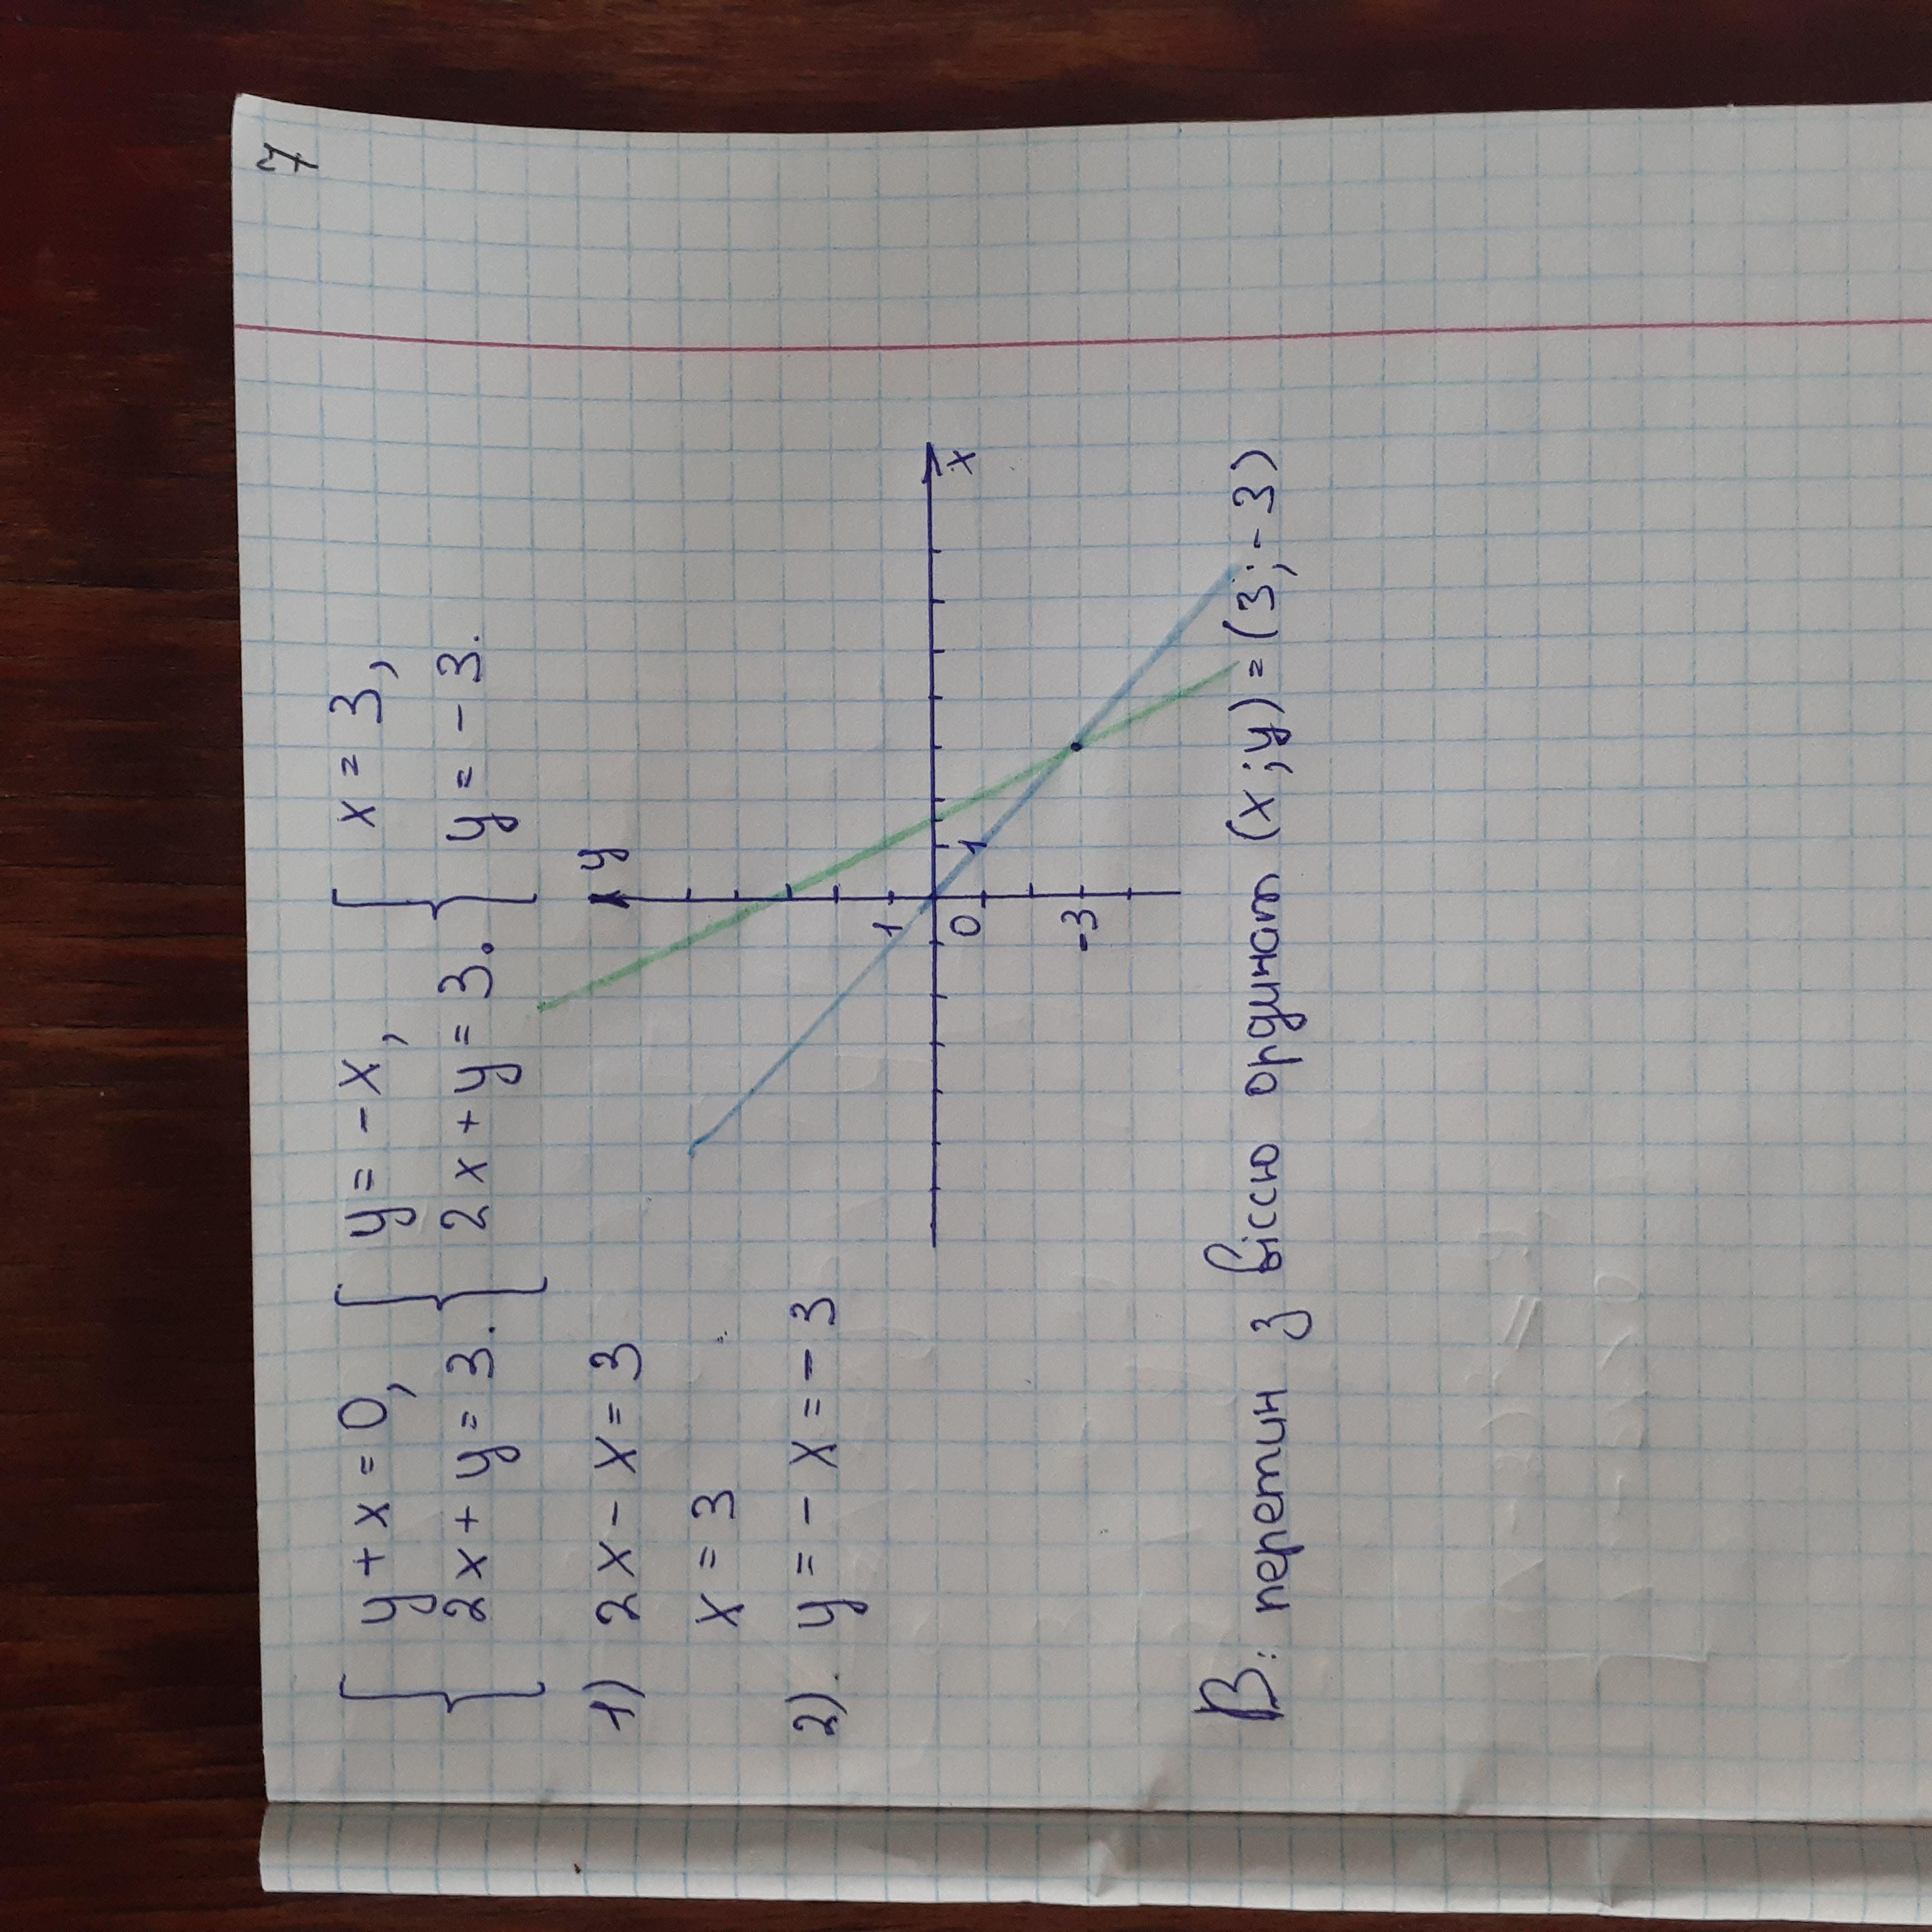 7
{ y + x = 0, { y = - x, { x = 3,
2x + y = 3. 2x + y = 3. y = - 3.
1) 2x - x = 3
x = 3
2). y = - x = - 3
y
1
0
1
x
-3
В: перетин з віссю ординат (x ; y) = (3 ; - 3)